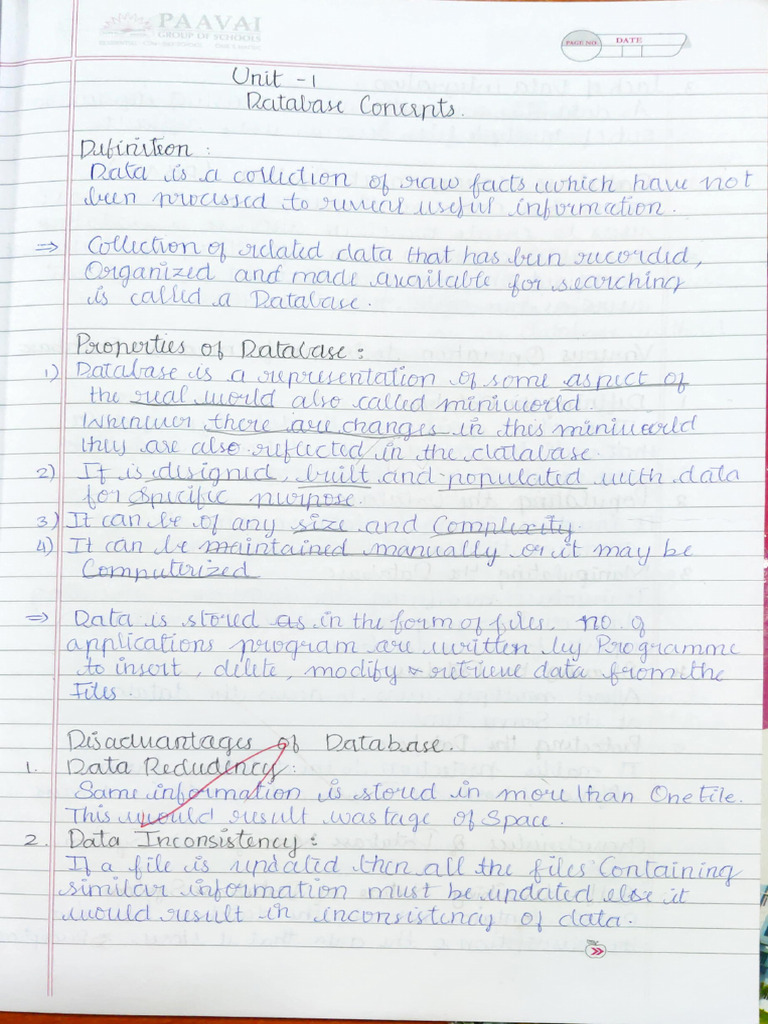 PAAVAI
GROUP OF SCHOOLS
PAGE NO.
DATE
Unit - 1
Database Concepts.
Definition :
Data is a collection of raw facts which have not
been processed to reveal useful information.
⇒ Collection of related data that has been recorded,
Organized and made available for searching
is called a Database.
Properties of Database :
1) Database is a representation of some aspect of
the real world also called miniworld
Whenever there are changes in this miniworld
they are also reflected in the database.
2) It is designed, built and populated with data
for specific purpose.
3) It can be of any size and Complexity.
4) It can be maintained manually or it may be
Computerized
⇒ Data is stored as in the form of files. no. of
applications program are written by Programme
to insert, delete, modify & retrieve data from the
Files.
Disadvantages of Database.
1. Data Redudency :
Same information is stored in more than One File.
This would result wastage of Space.
2. Data Inconsistency :
If a file is updated then all the files Containing
similar information must be updated else it
would result in inconsistency of data.